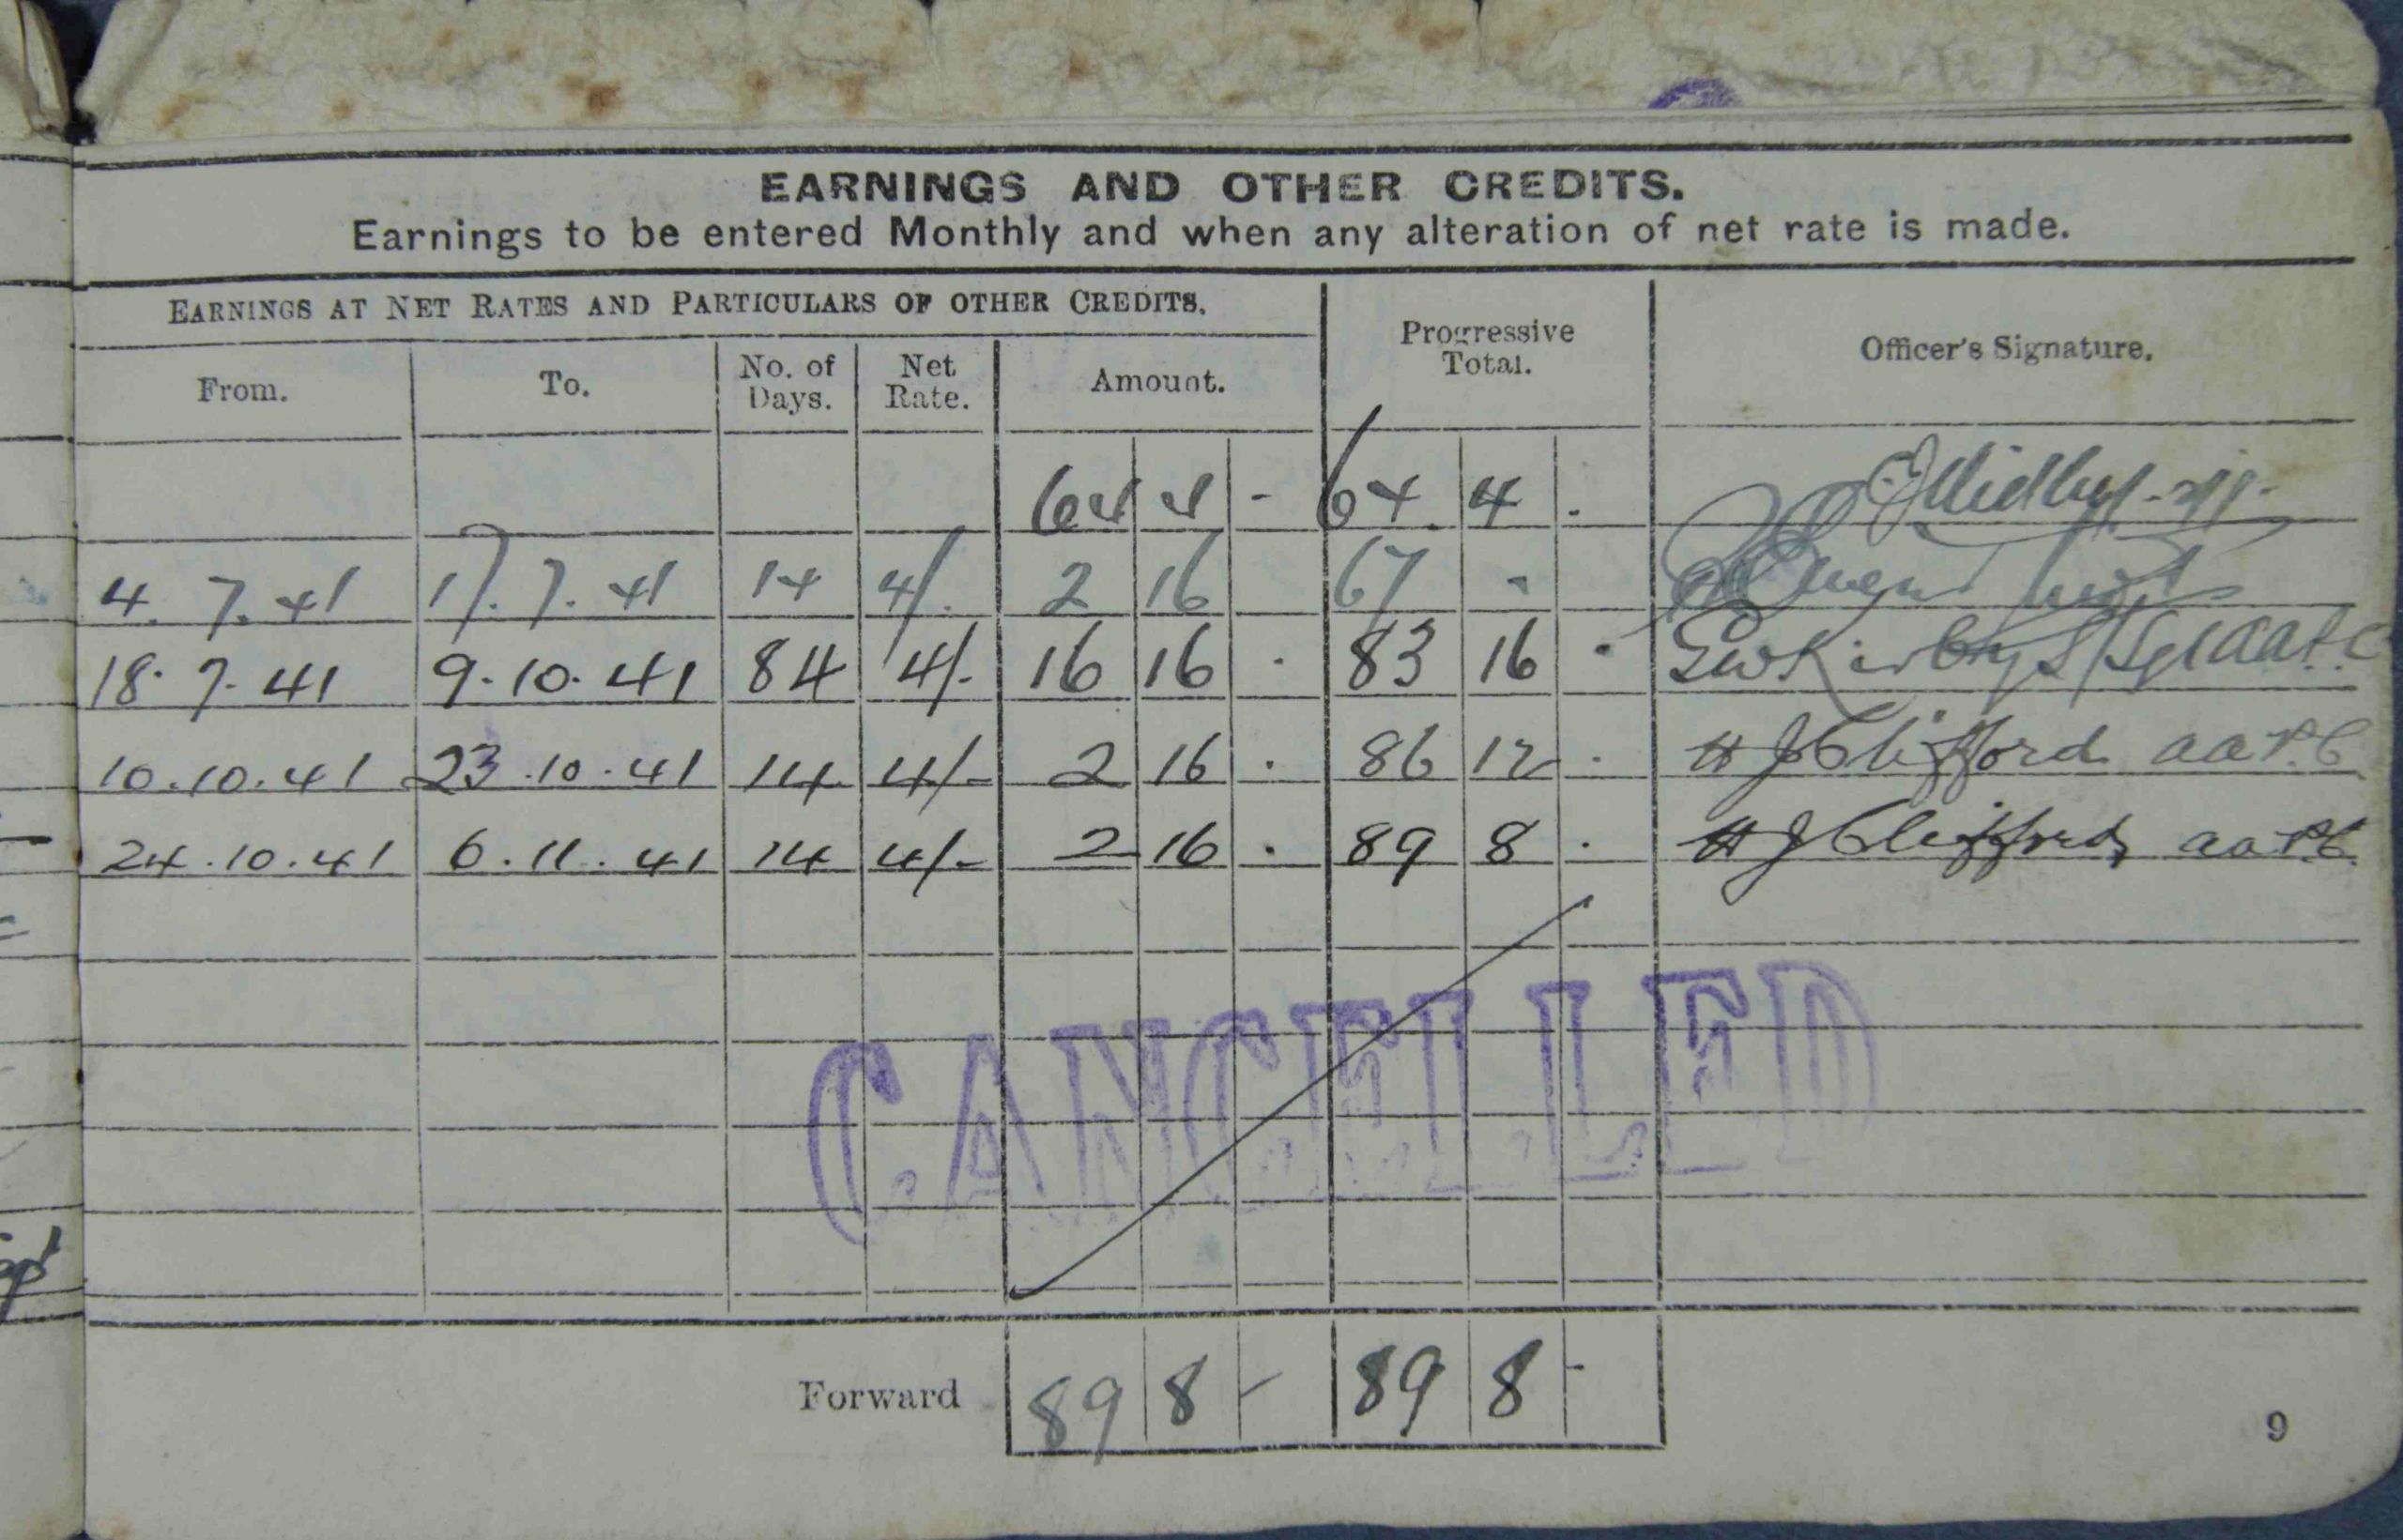 EARNINGS AND OTHER CREDITS.
Earnings to be entered Monthly and when any alteration of net rate is made.
EARNINGS AT NET RATES AND PARTICULARS OF OTHER CREDITS.
Progressive Total.
Officer's Signature.
From. To. No. of Days. Net Rate. Amount.
64 4 - 64 4 .
4. 7. 41 17. 7. 41 14 4/- 2 16 67 -
18. 7. 41 9. 10. 41 84 4/- 16 16 . 83 16 . GW Kirby S/Sgt AAPC
10. 10. 41 23. 10. 41 14 4/- 2 16 . 86 12 . H J Clifford AAPC
24. 10. 41 6. 11. 41 14 4/- 2 16 . 89 8 . H J Clifford AAPC
CANCELLED
Forward 89 8 - 89 8 -
9